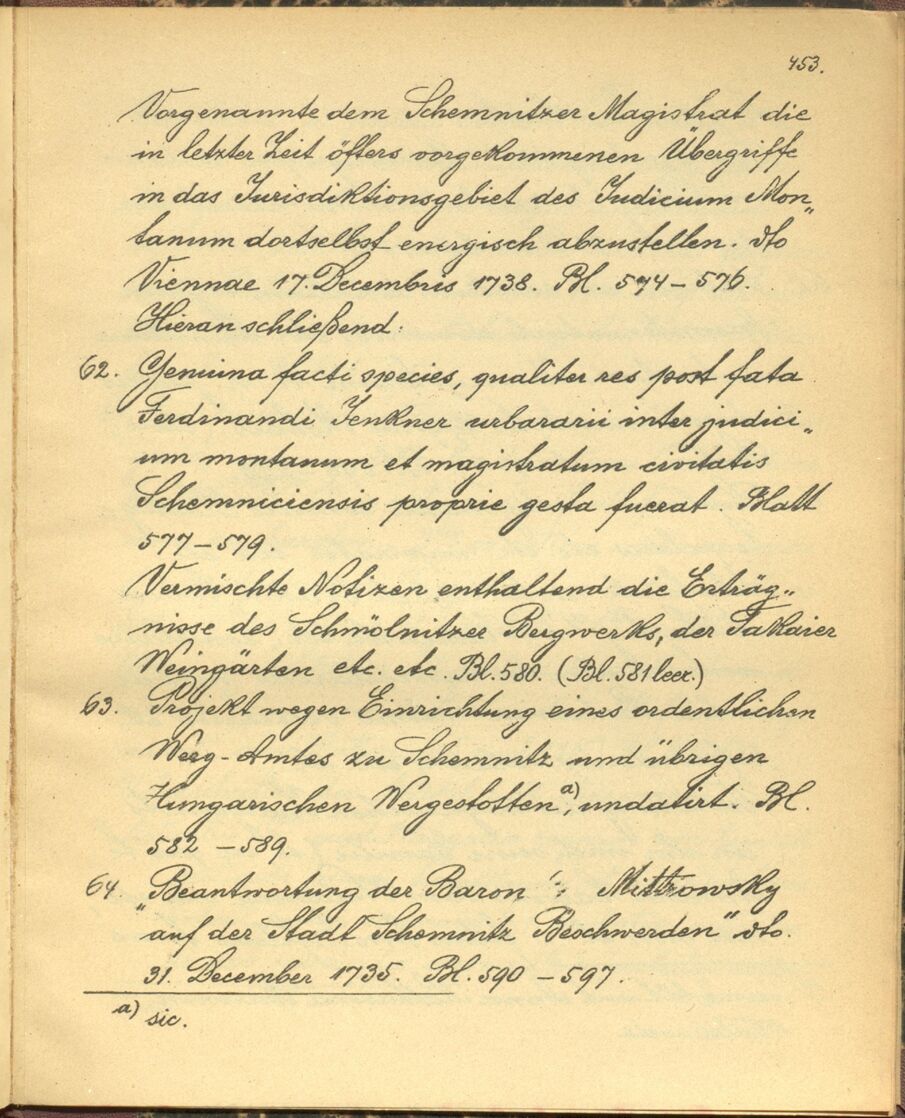 453.
Vorgenannte dem Schemnitzer Magistrat die
in letzter Zeit öfters vorgekommenen Übergriffe
in das Jurisdiktionsgebiet des Judicium Mon„
tanum dortselbst energisch abzustellen. dto
Viennae 17. Decembris 1738. Bl. 574 – 576.
Hieran schließend:
62. Genuina facti species, qualiter res post fata
Ferdinandi Jenkner urbararii inter judici„
um montanum et magistratum civitatis
Schemniciensis proprie gesta fuerat. Blatt
577 – 579.
Vermischte Notizen enthaltend die Erträg„
nisse des Schmölnitzer Bergwerks, der Takaier
Weingärten etc. etc. Bl. 580. (Bl. 581 leer.)
63. Projekt wegen Einrichtung eines ordentlichen
Werg-Amtes zu Schemnitz und übrigen
Hungarischen Wergestotten a), undatirt. Bl.
582 – 589.
64. „Beantwortung der Baron Mittrowsky
auf der Stadt Schemnitz Beschwerden" dto.
31. December 1735. Bl. 590 – 597.
a) sic.